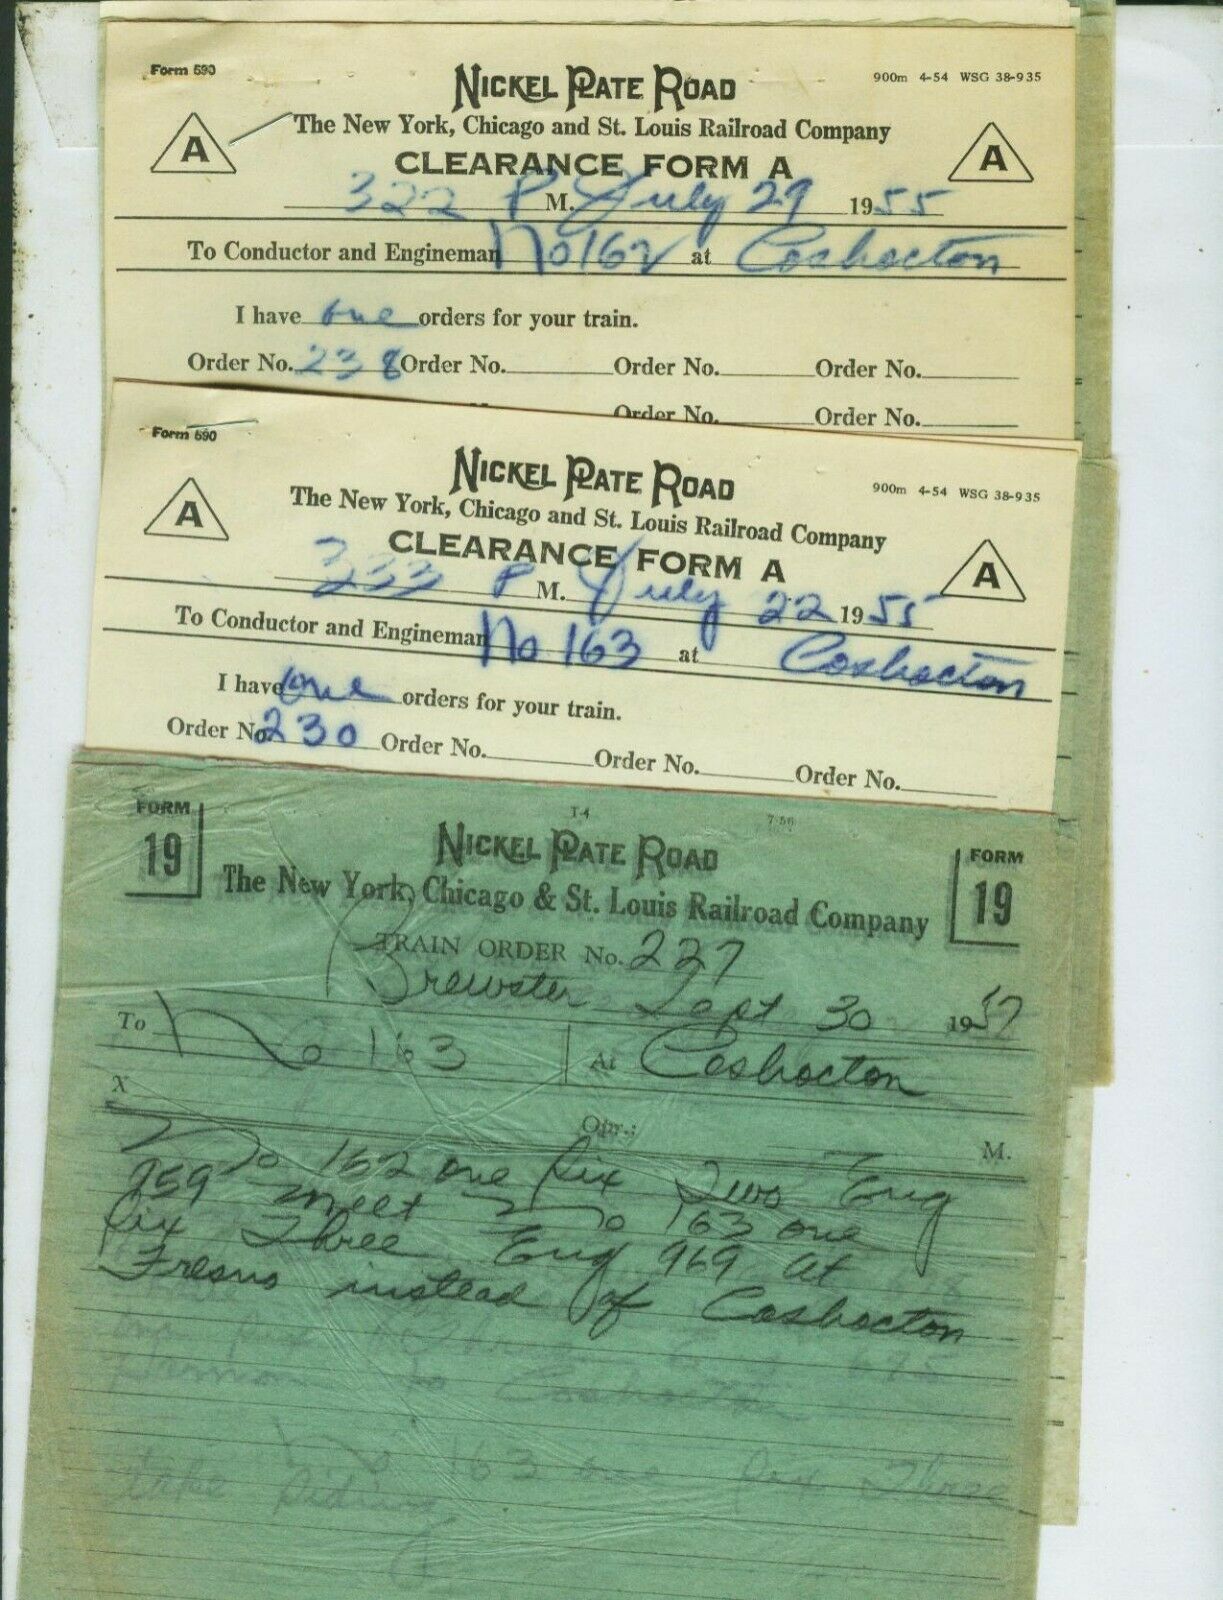 Form 590
NICKEL PLATE ROAD
900m 4-54 WSG 38-935
A
The New York, Chicago and St. Louis Railroad Company
A
CLEARANCE FORM A
322 P M. July 29 1955
To Conductor and Engineman No 162 at Coshocton
I have one orders for your train.
Order No. 238 Order No. Order No. Order No.
Order No. Order No.
Form 590
NICKEL PLATE ROAD
900m 4-54 WSG 38-935
A
The New York, Chicago and St. Louis Railroad Company
A
CLEARANCE FORM A
333 P M. July 22 1955
To Conductor and Engineman No 163 at Coshocton
I have one orders for your train.
Order No. 230 Order No. Order No. Order No.
FORM 19
T-4
7-56
NICKEL PLATE ROAD
FORM 19
The New York, Chicago & St. Louis Railroad Company
TRAIN ORDER No. 227
Brewster Sept 30 1957
To No 163 At Coshocton
X
Opr.; M.
No 162 one six Two Eng
959 meet No 163 one
six Three Eng 969 at
Fresno instead of Coshocton
to Coshocton
No 163 one six Three
take siding